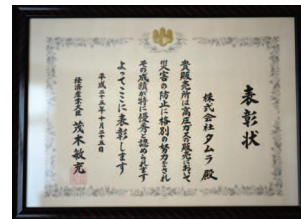 表彰状
株式会社タムラ 殿
貴販売所は高圧ガスの販売において
災害の防止に格別の努力をされ
その成績が特に優秀と認められます
よってここに表彰します
平成二十五年十月二十五日
経済産業大臣 茂木敏充